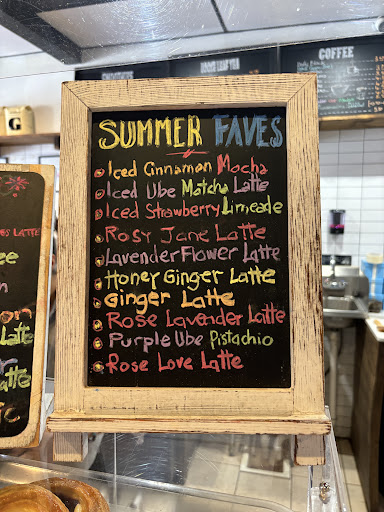 COFFEE
G
SUMMER FAVES
Iced Cinnamon Mocha
Iced Ube Matcha Latte
Iced Strawberry Limeade
Rosy Jane Latte
Lavender Flower Latte
Honey Ginger Latte
Ginger Latte
Rose Lavender Latte
Purple Ube Pistachio
Rose Love Latte
LATTE
Latte